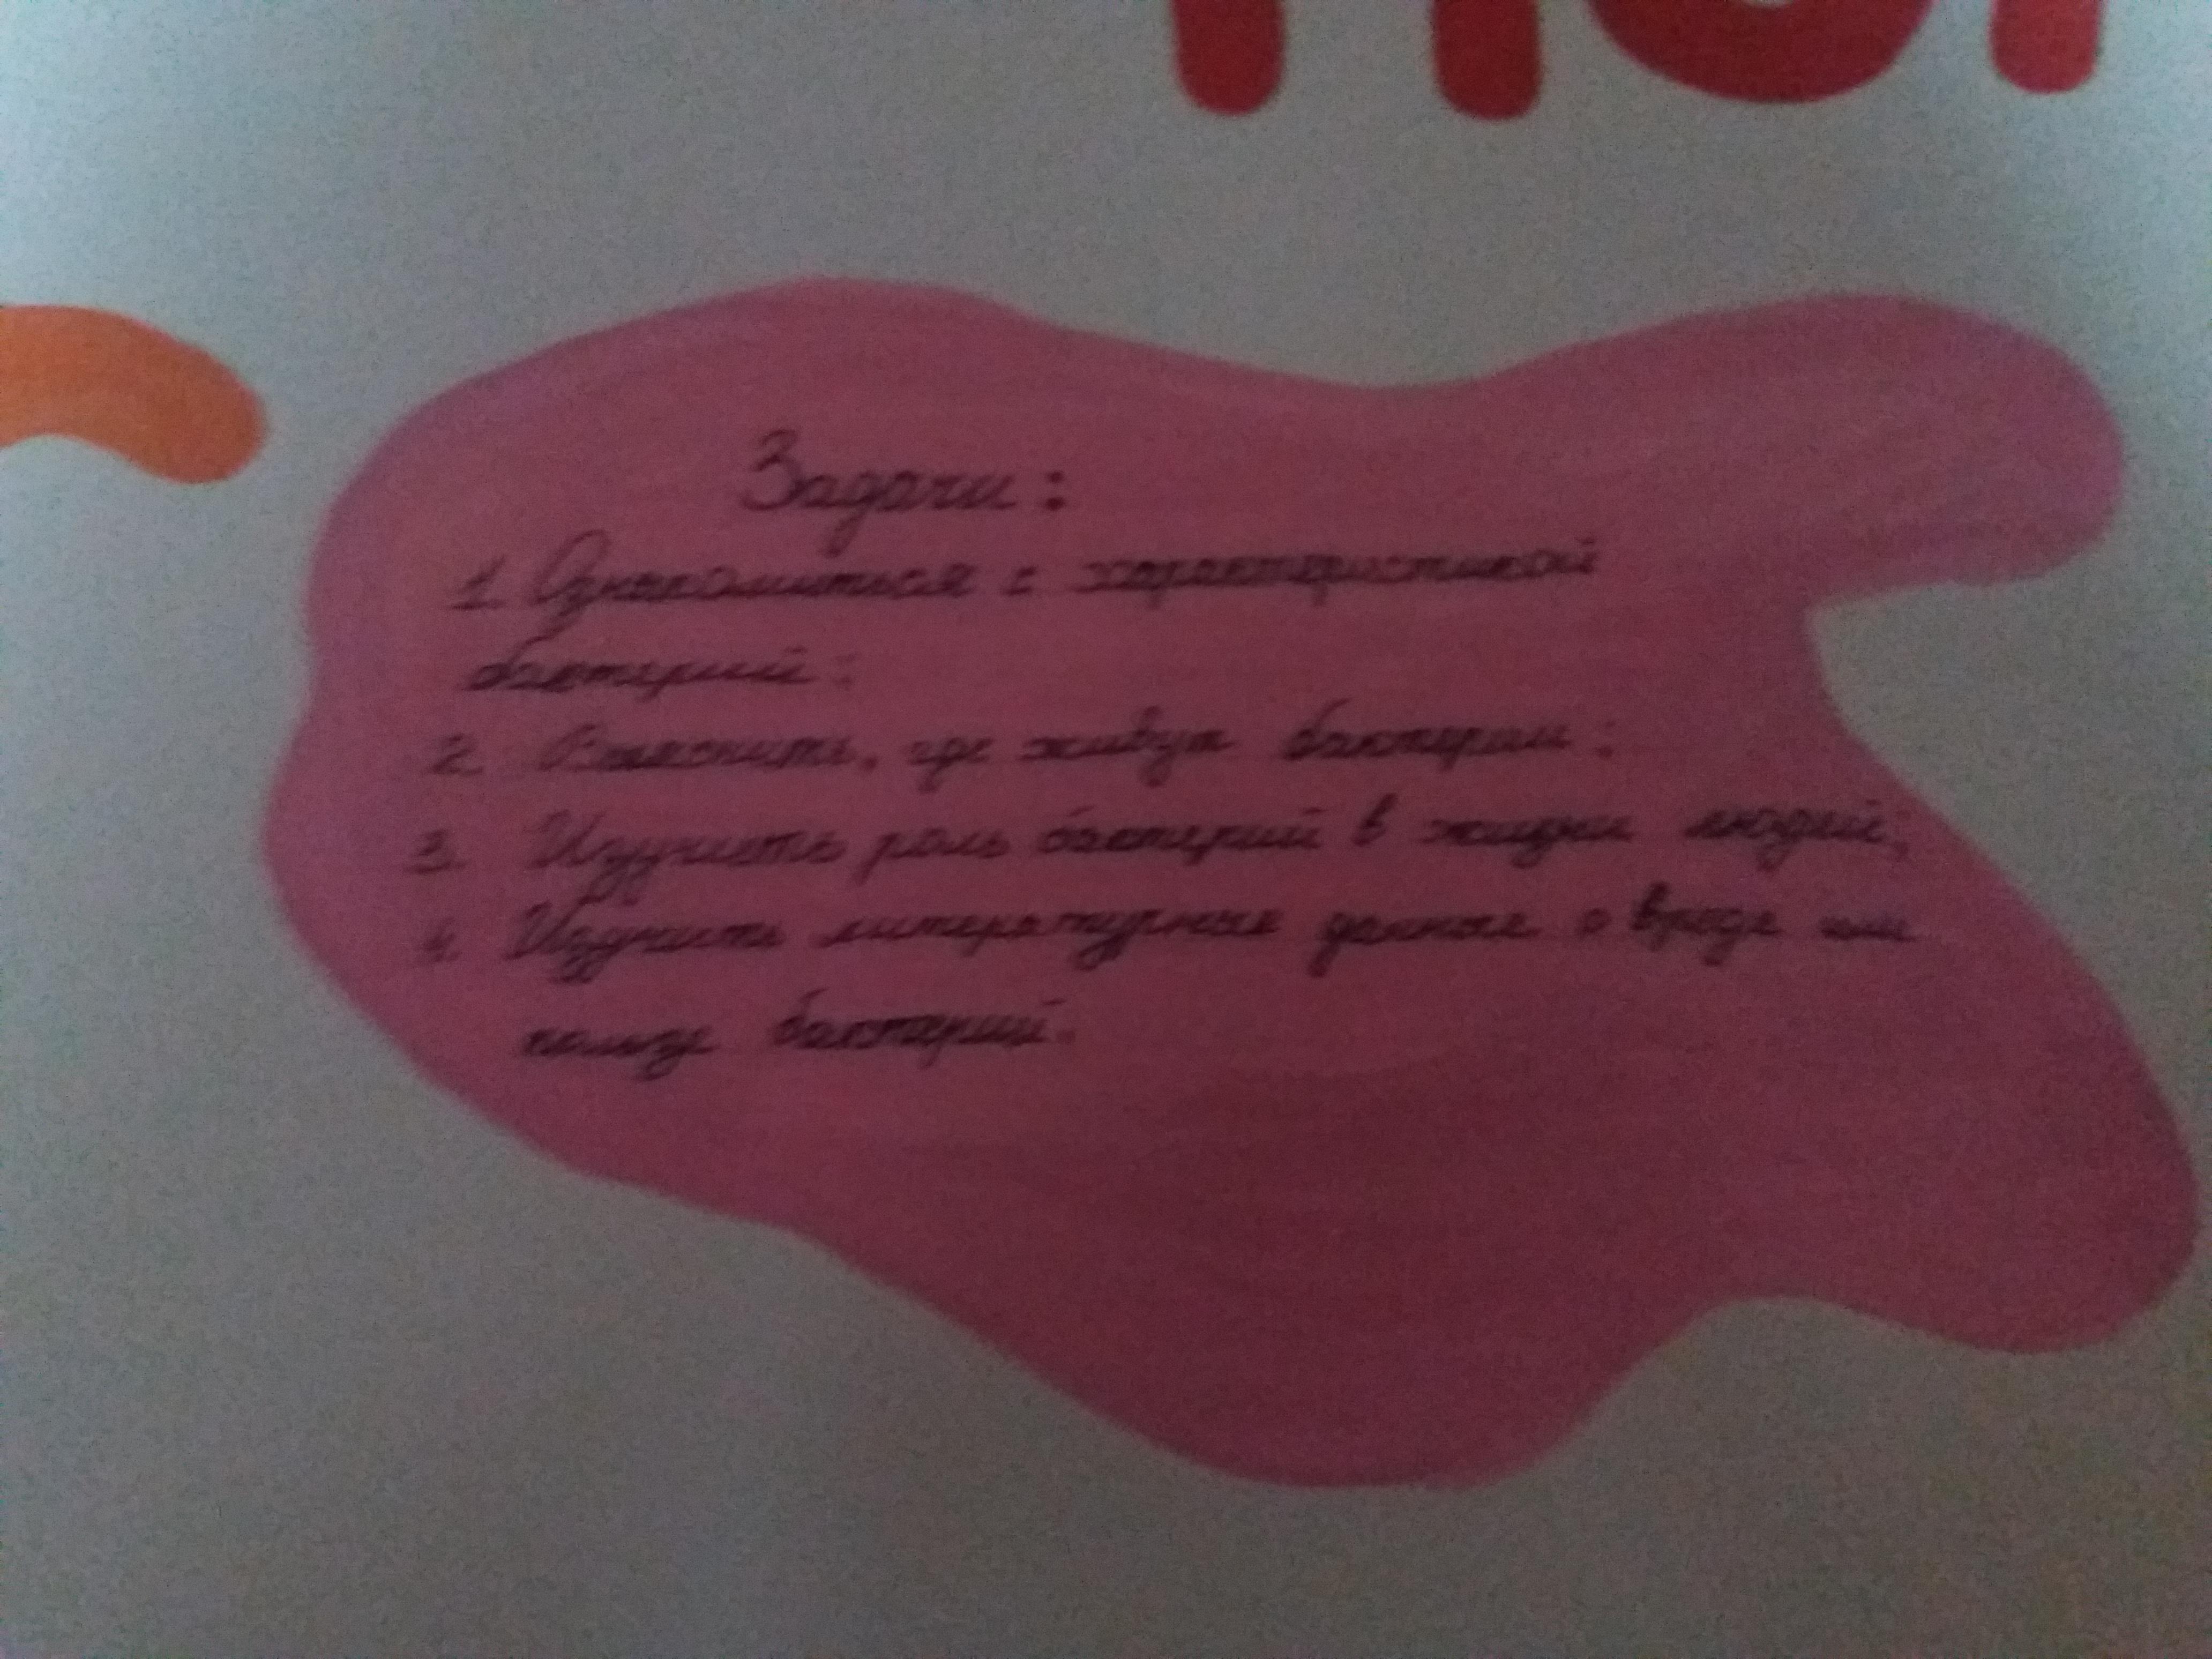 Задачи:
1. Ознакомиться с характеристикой
бактерий;
2. Выяснить, где живут бактерии;
3. Изучить роль бактерий в жизни людей;
4. Изучить литературные данные о вреде или
пользе бактерий.